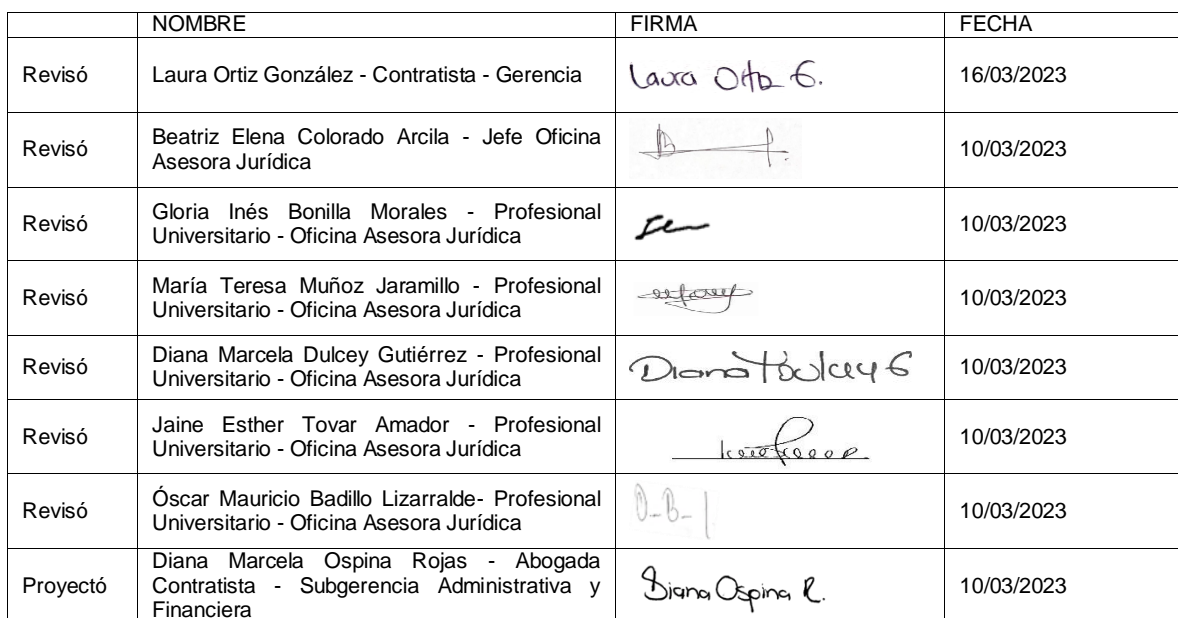 NOMBRE FIRMA FECHA
Revisó Laura Ortiz González - Contratista - Gerencia Laura Ortiz G. 16/03/2023
Revisó Beatriz Elena Colorado Arcila - Jefe Oficina
Asesora Jurídica 10/03/2023
Revisó Gloria Inés Bonilla Morales - Profesional
Universitario - Oficina Asesora Jurídica 10/03/2023
Revisó María Teresa Muñoz Jaramillo - Profesional
Universitario - Oficina Asesora Jurídica 10/03/2023
Revisó Diana Marcela Dulcey Gutiérrez - Profesional
Universitario - Oficina Asesora Jurídica Diana Dulcey G 10/03/2023
Revisó Jaine Esther Tovar Amador - Profesional
Universitario - Oficina Asesora Jurídica 10/03/2023
Revisó Óscar Mauricio Badillo Lizarralde- Profesional
Universitario - Oficina Asesora Jurídica O-B- 10/03/2023
Proyectó Diana Marcela Ospina Rojas - Abogada
Contratista - Subgerencia Administrativa y
Financiera Diana Ospina R. 10/03/2023